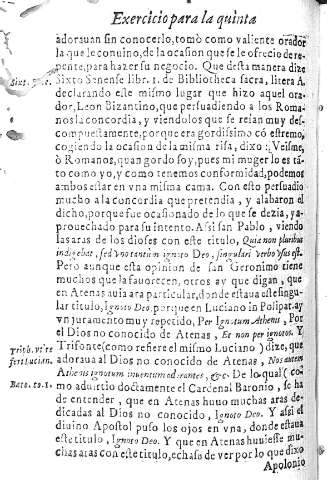 Exercicio para la quinta
adorauan sin conocerlo, tomò como valiente orador
la que le conuino, de la ocasion que se le ofrecio de re-
pente, para hazer su negocio. Que desta manera dize
Sixto Senense libr. 1. de Bibliotheca sacra, litera A.
declarando este mismo lugar que hizo aquel ora-
dor, Leon Bizantino, que persuadiendo a los Roma-
nos la concordia, y viendolos que se reian muy des-
compuestamente, porque era gordissimo cō estremo,
cogiendo la ocasion de la misma risa, dixo: Veisme,
ò Romanos, quan gordo soy, pues mi muger lo es tā-
to como yo, y como tenemos conformidad, podemos
ambos estar en vna misma cama. Con esto persuadio
mucho a la concordia que pretendia, y alabaron el
dicho, porque fue ocasionado de lo que se dezia, y a-
prouechado para su intento. Assi san Pablo, viendo
las aras de los dioses con este titulo, Quia non pluribus
indigebat, sed vno tantùm ignoto Deo, singulari verbo vsus est.
Pero aunque esta opinion de san Geronimo tiene
muchos que la fauorecen, otros ay que digan, que
en Atenas auia ara particular, donde estaua este singu-
lar titulo, Ignoto Deo, porque en Luciano in Polipat. ay
vn juramento muy repetido, Per Ignotum Athenis, Por
el Dios no conocido de Atenas, Et non per ignotos. Y
Trifonte (como refiere el mismo Luciano) dize, que
adoraua al Dios no conocido de Atenas, Nos autem
Athenis ignotum inuentum adorantes, &c. De lo qual (co
mo aduirtio doctamente el Cardenal Baronio, se ha
de entender, que en Atenas huuo muchas aras de-
dicadas al Dios no conocido, Ignoto Deo. Y assi el
diuino Apostol puso los ojos en vna, donde estaua
este titulo, Ignoto Deo. Y que en Atenas huuiesse mu-
chas aras con este titulo, echase de ver por lo que dixo
Apolonio
Sixt. Sene.
feri Lucian.
Baro. to. 1.